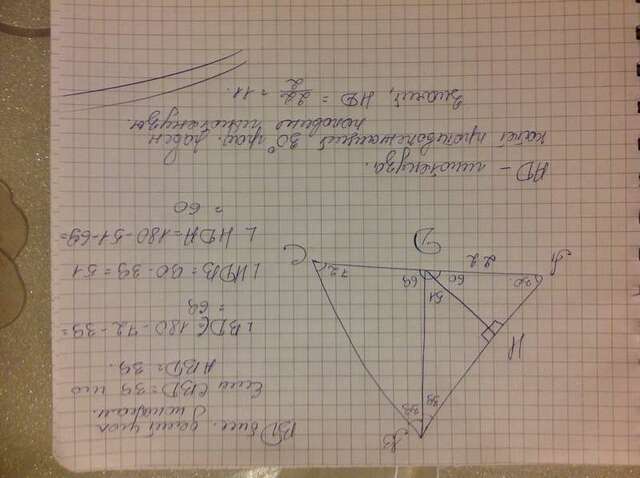 B
39
39
H
51
69
60
72
A
D
22
C
BD бисс. делит угол
пополам.
Если CBD=39 то
ABD=39.
∠BDC 180-72-39=
=69
∠HDB=90-39=51
∠HDA=180-51-69=
=60
AD - гипотенуза.
катет противолежащий 30° град. равен
половине гипотенузы.
Значит, HD = 22/2 = 11.